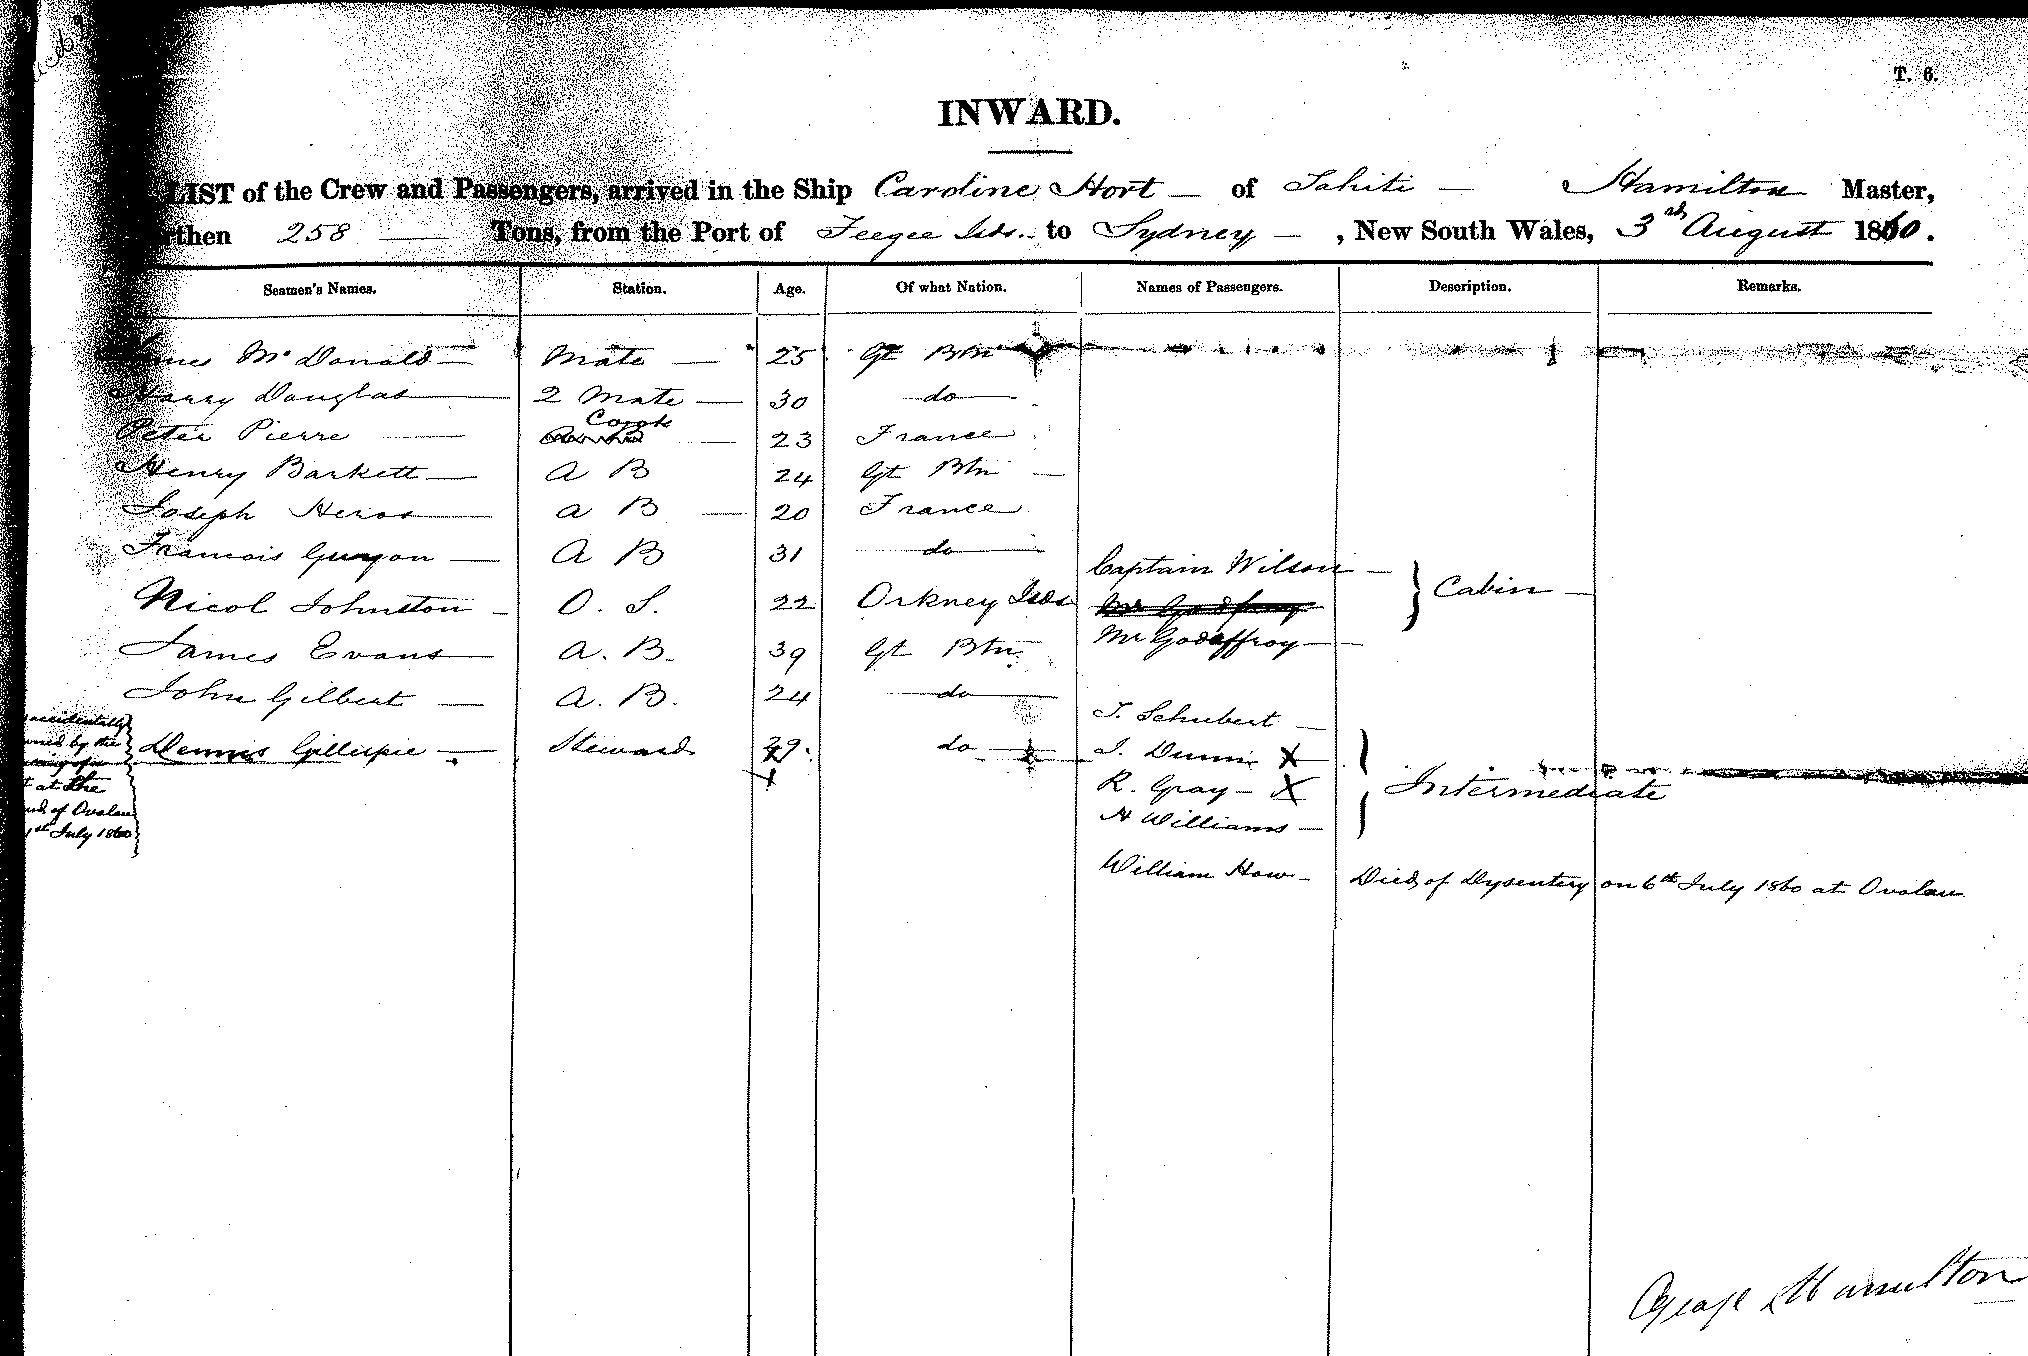 T. 6.
INWARD.
LIST of the Crew and Passengers, arrived in the Ship Caroline Hort — of Tahiti — Hamilton Master,
rthen 258 — Tons, from the Port of Feegee Isds. to Sydney — , New South Wales, 3rd August 1860.
Seamen's Names. Station. Age. Of what Nation. Names of Passengers. Description. Remarks.
McDonald — Mate — 25 Gt Btn
Harry Douglas — 2 Mate — 30 do
Peter Pierre — Cook — 23 France
Henry Barkett — A B 24 Gt Btn —
Joseph Heros — A B — 20 France
Francois Guyon — A B 31 do
Captain Wilson —
Nicol Johnston — O. S. 22 Orkney Isds Cabin —
James Evans — A. B. 39 Gt Btn Mr Godeffroy —
John Gilbert — A. B. 24 do
J. Schubert —
Dennis Gillespie — Steward 29 do J. Dunn X
R. Gray — X Intermediate
H Williams —
William How — Died of Dysentery on 6th July 1860 at Ovalau
accidentally
by the
at the
of Ovalau
1st July 1860
George Hamilton